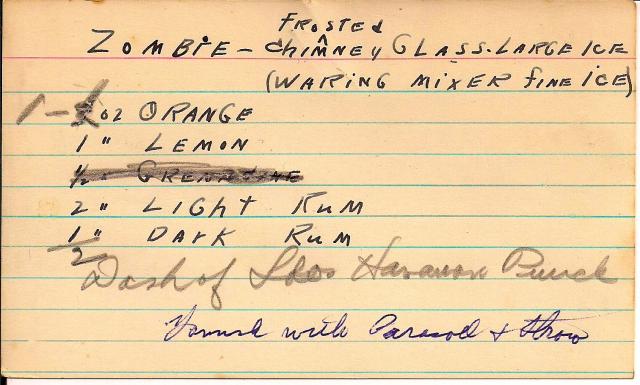 FROSTED
ZOMBIE - ChIMNEY GLASS. LARGE ICE
(WARING MIXER FINE ICE)
1 - oz ORANGE
1 " LEMON
1/2 " GRENADINE
2 " LIGHT RUM
1 " DARK RUM
1/2
Dash of Hawaiian Punch
with Parasol + Straw